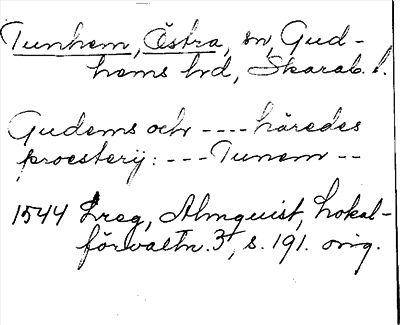 Tunhem, Östra, sn, Gud-
hems hd, Skarab. l.
Gudems och ---- häredes
proesterij: --- Tunem --
1544 Ereg, Almquist, Lokal-
förvaltn. 3, s. 191. orig.